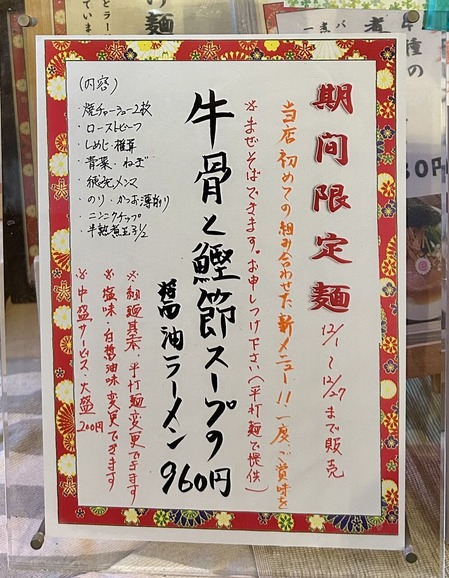 期間限定麺
12/1〜12/27まで販売
当店初めての組み合わせた新メニュー!!一度ご賞味を
※まぜそばできます。お申しつけ下さい(平打麺で提供)
牛骨と鰹節スープの
醤油ラーメン 960円
(内容)
・焼チャーシュー2枚
・ローストビーフ
・しめじ・椎茸
・青菜・ねぎ
・穂先メンマ
・のり・かつお薄削り
・ニンニクチップ
・半熟煮玉子1/2
※細麺基本、平打麺変更できます
※塩味・白醤油味変更できます
※中盛サービス、大盛200円